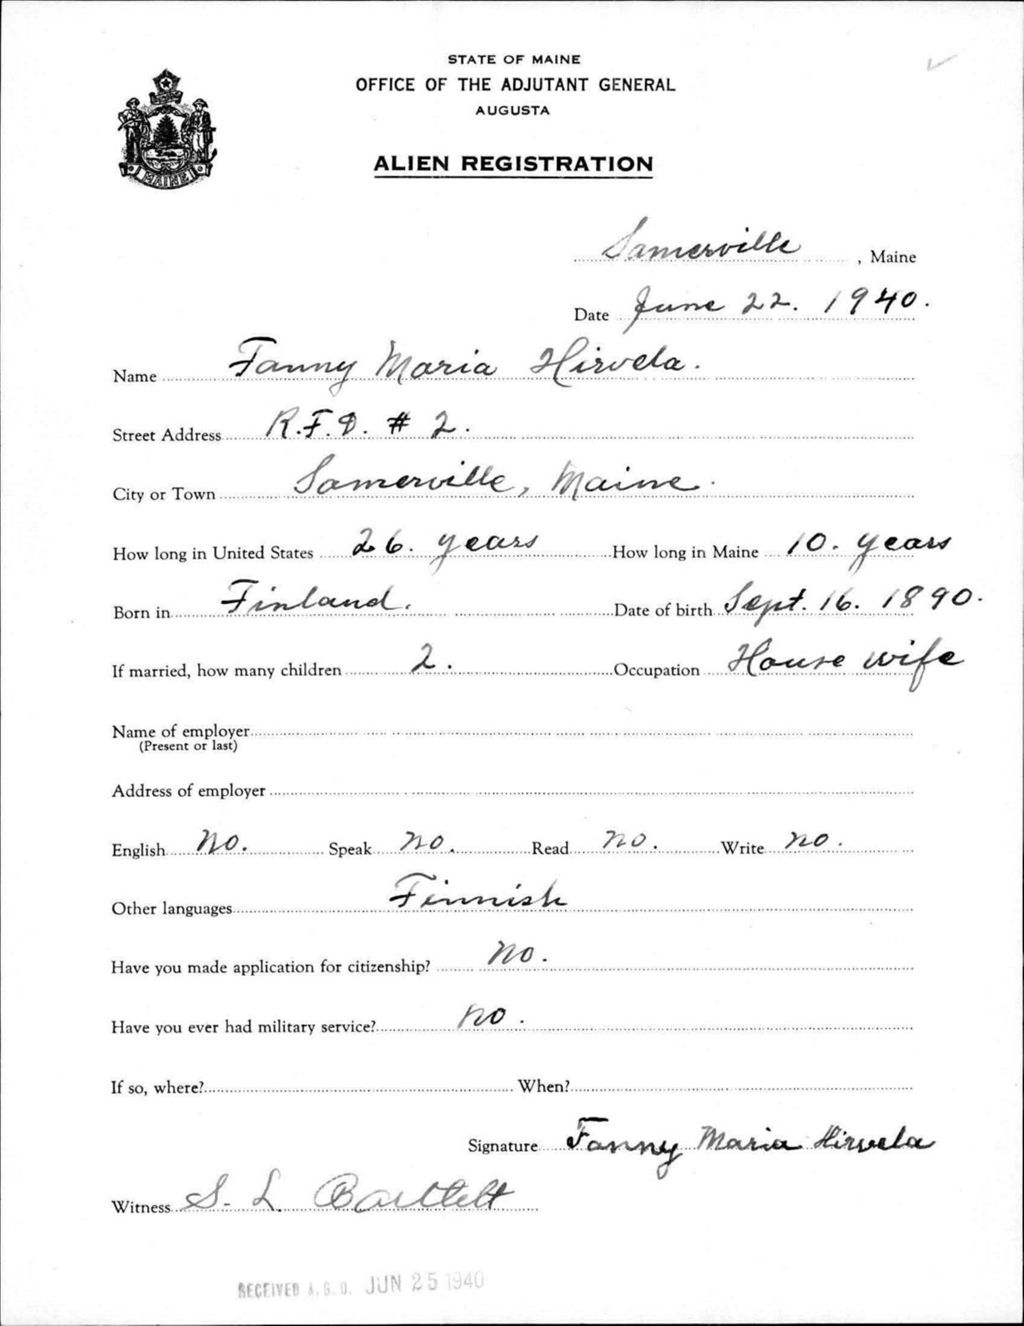 STATE OF MAINE
OFFICE OF THE ADJUTANT GENERAL
AUGUSTA
ALIEN REGISTRATION
MAINE
Somerville, Maine
Date June 22. 1940.
Name Fanny Maria Hirvela.
Street Address R.F.D. # 2.
City or Town Somerville, Maine.
How long in United States 26. years How long in Maine 10. years
Born in Finland. Date of birth Sept. 16. 1890.
If married, how many children 2. Occupation House wife
Name of employer
(Present or last)
Address of employer
English No. Speak no. Read no. Write no.
Other languages Finnish
Have you made application for citizenship? No.
Have you ever had military service? no.
If so, where? When?
Signature Fanny Maria Hirvela
Witness S. L. Bartlett
RECEIVED A.G.O. JUN 25 1940